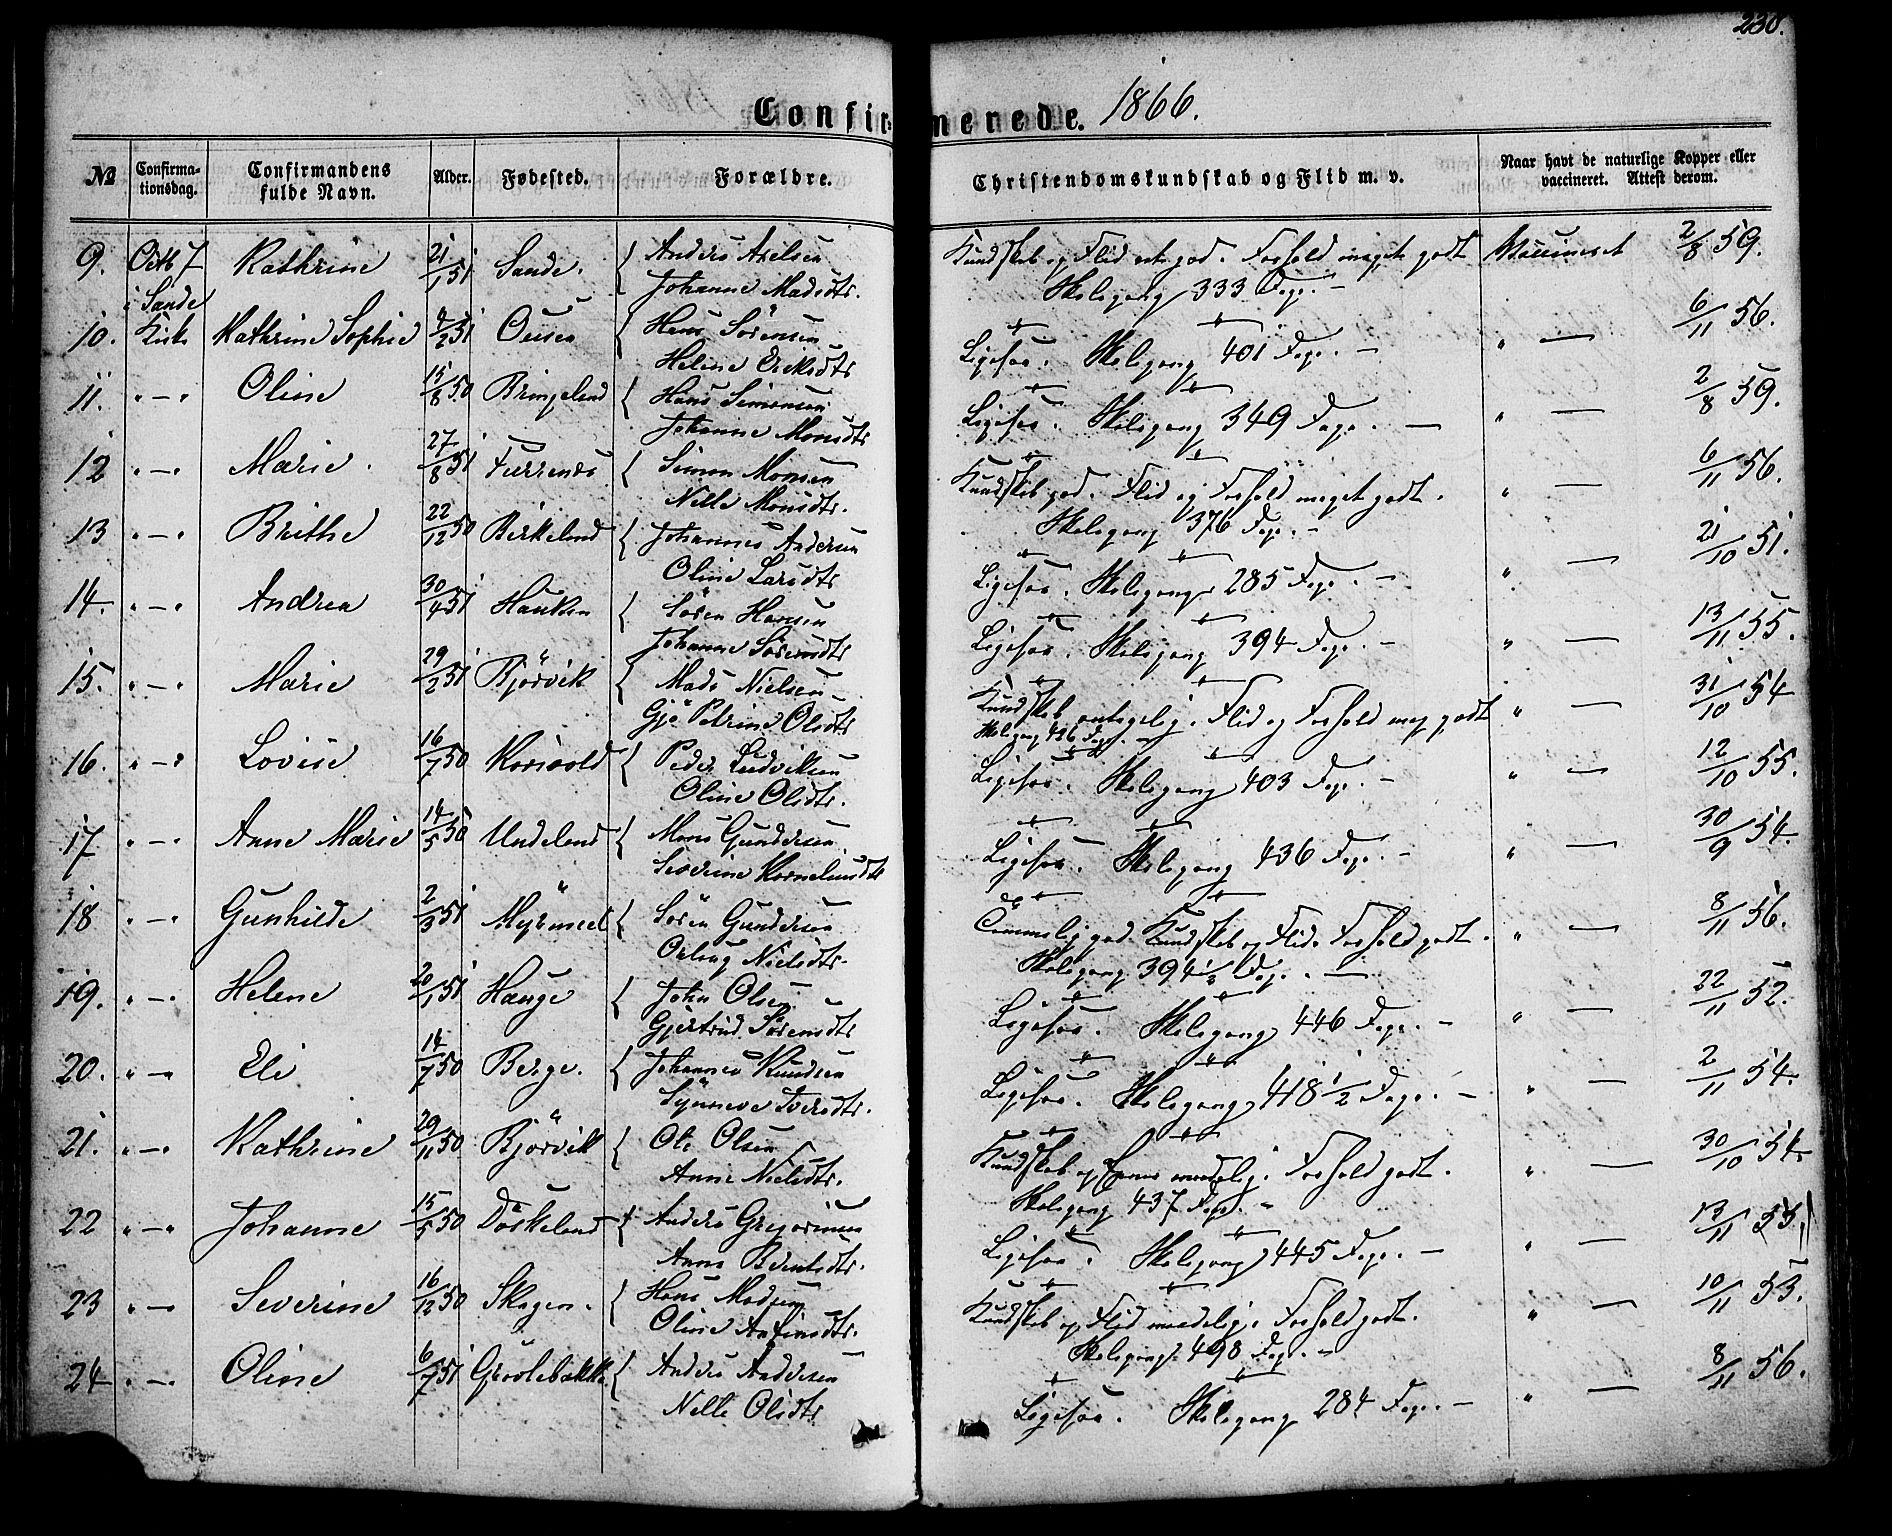 230.
Confirmerede. 1866.
№ Confirmationsdag. Confirmandens fulde Navn. Alder. Fødested. Forældre. Christendomskundskab og Flid m. v. Naar havt de naturlige Kopper eller vaccineret. Attest derom.
9. Octb 7 Kathrine 21/1 51 Sande. { Anders Axelsen Kundskab og Flid godt. Forhold meget godt Vaccineret 2/8 59.
i Sande Johanne Madsdtr. Skolegang 333 Dage. –
10. Kirke Kathrine Sophie /2 51 Ousen { Hans Sörensen Ligesaa. Skolegang 401 Dage. – " — 6/11 56.
Helene Eriksdtr
11. " – " Oline 15/8 50 Bringeland { Hans Simonsen Ligesaa. Skolegang 349 Dage. — " — 2/8 59.
Johanne Monsdtr
12 " – " Marie. 27/8 51 { Simon Monsen Kundskab god. Flid og Forhold meget godt. " — 6/11 56.
Nille Monsdtr. Skolegang 376 Dage. –
13 " – " Brithe 22/12 50 Birkeland { Johannes Andersen Ligesaa. Skolegang 285 Dage. – " — 21/10 51.
Oline Larsdtr
14. " – " Andrea 30/4 51 Hauken { Sören Hansen Ligesaa. Skolegang 394 Dage. – " — 13/11 55.
Johanne Sörensdtr
15. " – " Marie 29/2 51 Bjørvik { Mads Nielsen Kundskab antagelig. Flid og Forhold meg. godt " — 31/10 54
Petrine Olsdtr Skolegang 426 Dage. –
16. " – " Lovise 16/7 50 Korsvold { Peder Ludviksen Ligesaa. Skolegang 403 Dage. – " — 12/10 55.
Oline Olsdtr.
17 " – " Anne Marie 14/5 50 Undeland { Mons Gundersen Ligesaa. Skolegang 436 Dage. – " — 30/9 54.
Severine Korneliusdtr
18 " – " Gunhilde 2/3 51 { Sören Gundersen god Kundskab og Flid. Forhold godt. " — 8/11 56.
Nielsdtr. Skolegang 394 1/2 Dage. —
19. " – " Helene 20/1 51 Hauge { John Olsen Ligesaa. Skolegang 446 Dage. – " — 22/11 52.
Gjertrud Sörensdtr
20. " – " Eli 14/7 50 Berge. { Johannes Knudsen Ligesaa. Skolegang 418 1/2 Dage. – " — 2/11 54.
Synneve Iversdtr.
21. " – " Kathrine 29/11 50 Bjørvik { Ole Olsen Kundskab og Evner maadelig. Forhold godt. " — 30/10 54
Anne Nielsdtr. Skolegang 437 Dage. –
22 " – " Johanne 15/5 50 Döskeland { Anders Gregoriusen Ligesaa. Skolegang 445 Dage. – " — 13/11 53.
Anna Bentsdtr.
23 " – " Severine 16/12 50 Skogen. { Hans Madsen Kundskab og Flid maadelig. Forhold godt. " — 10/11 53.
Oline Anfinsdtr. Skolegang 498 Dage. –
24 " – " Oline 6/7 51 { Anders Andersen Ligesaa. Skolegang 284 Dage. – " — 8/11 56.
Nille Olsdtr